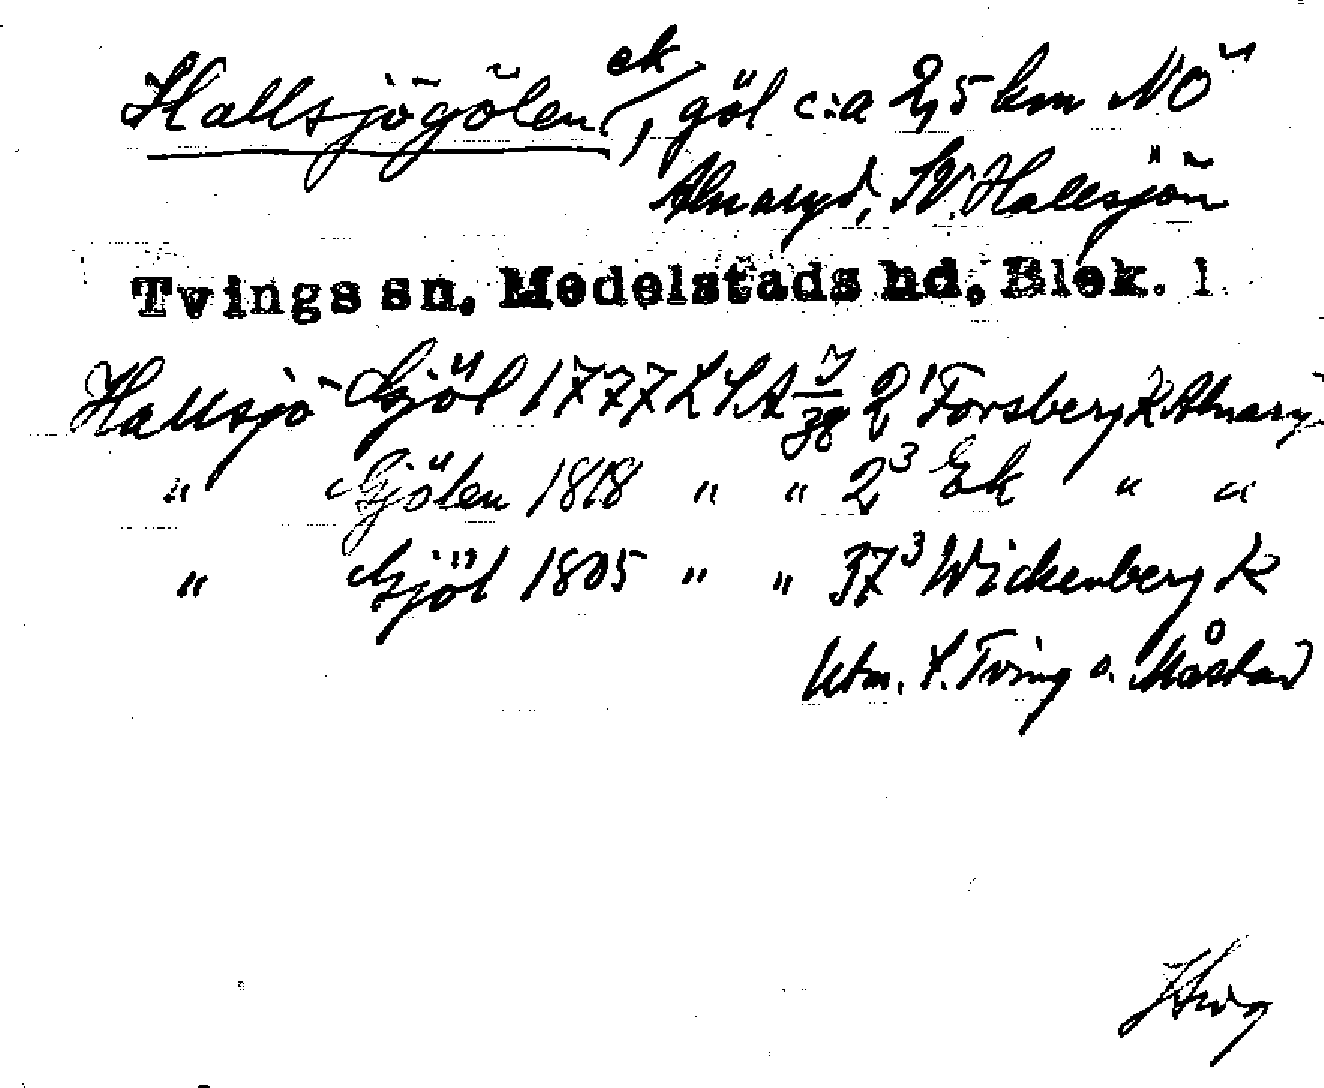 Hallsjögölen ek/, göl c:a 2,5 km NÖ
Alnaryd, SV. Hallsjön
Tvings sn, Medelstads hd, Blek. l
Hallsjö Gjöl 1777 LSA J/38 2¹ Forsberg K Alnary
" Gjölen 1818 " " 2³ Ek " "
" Gjöl 1805 " " 37³ Wickenberg K
Utm. S. Tving o. Måstad